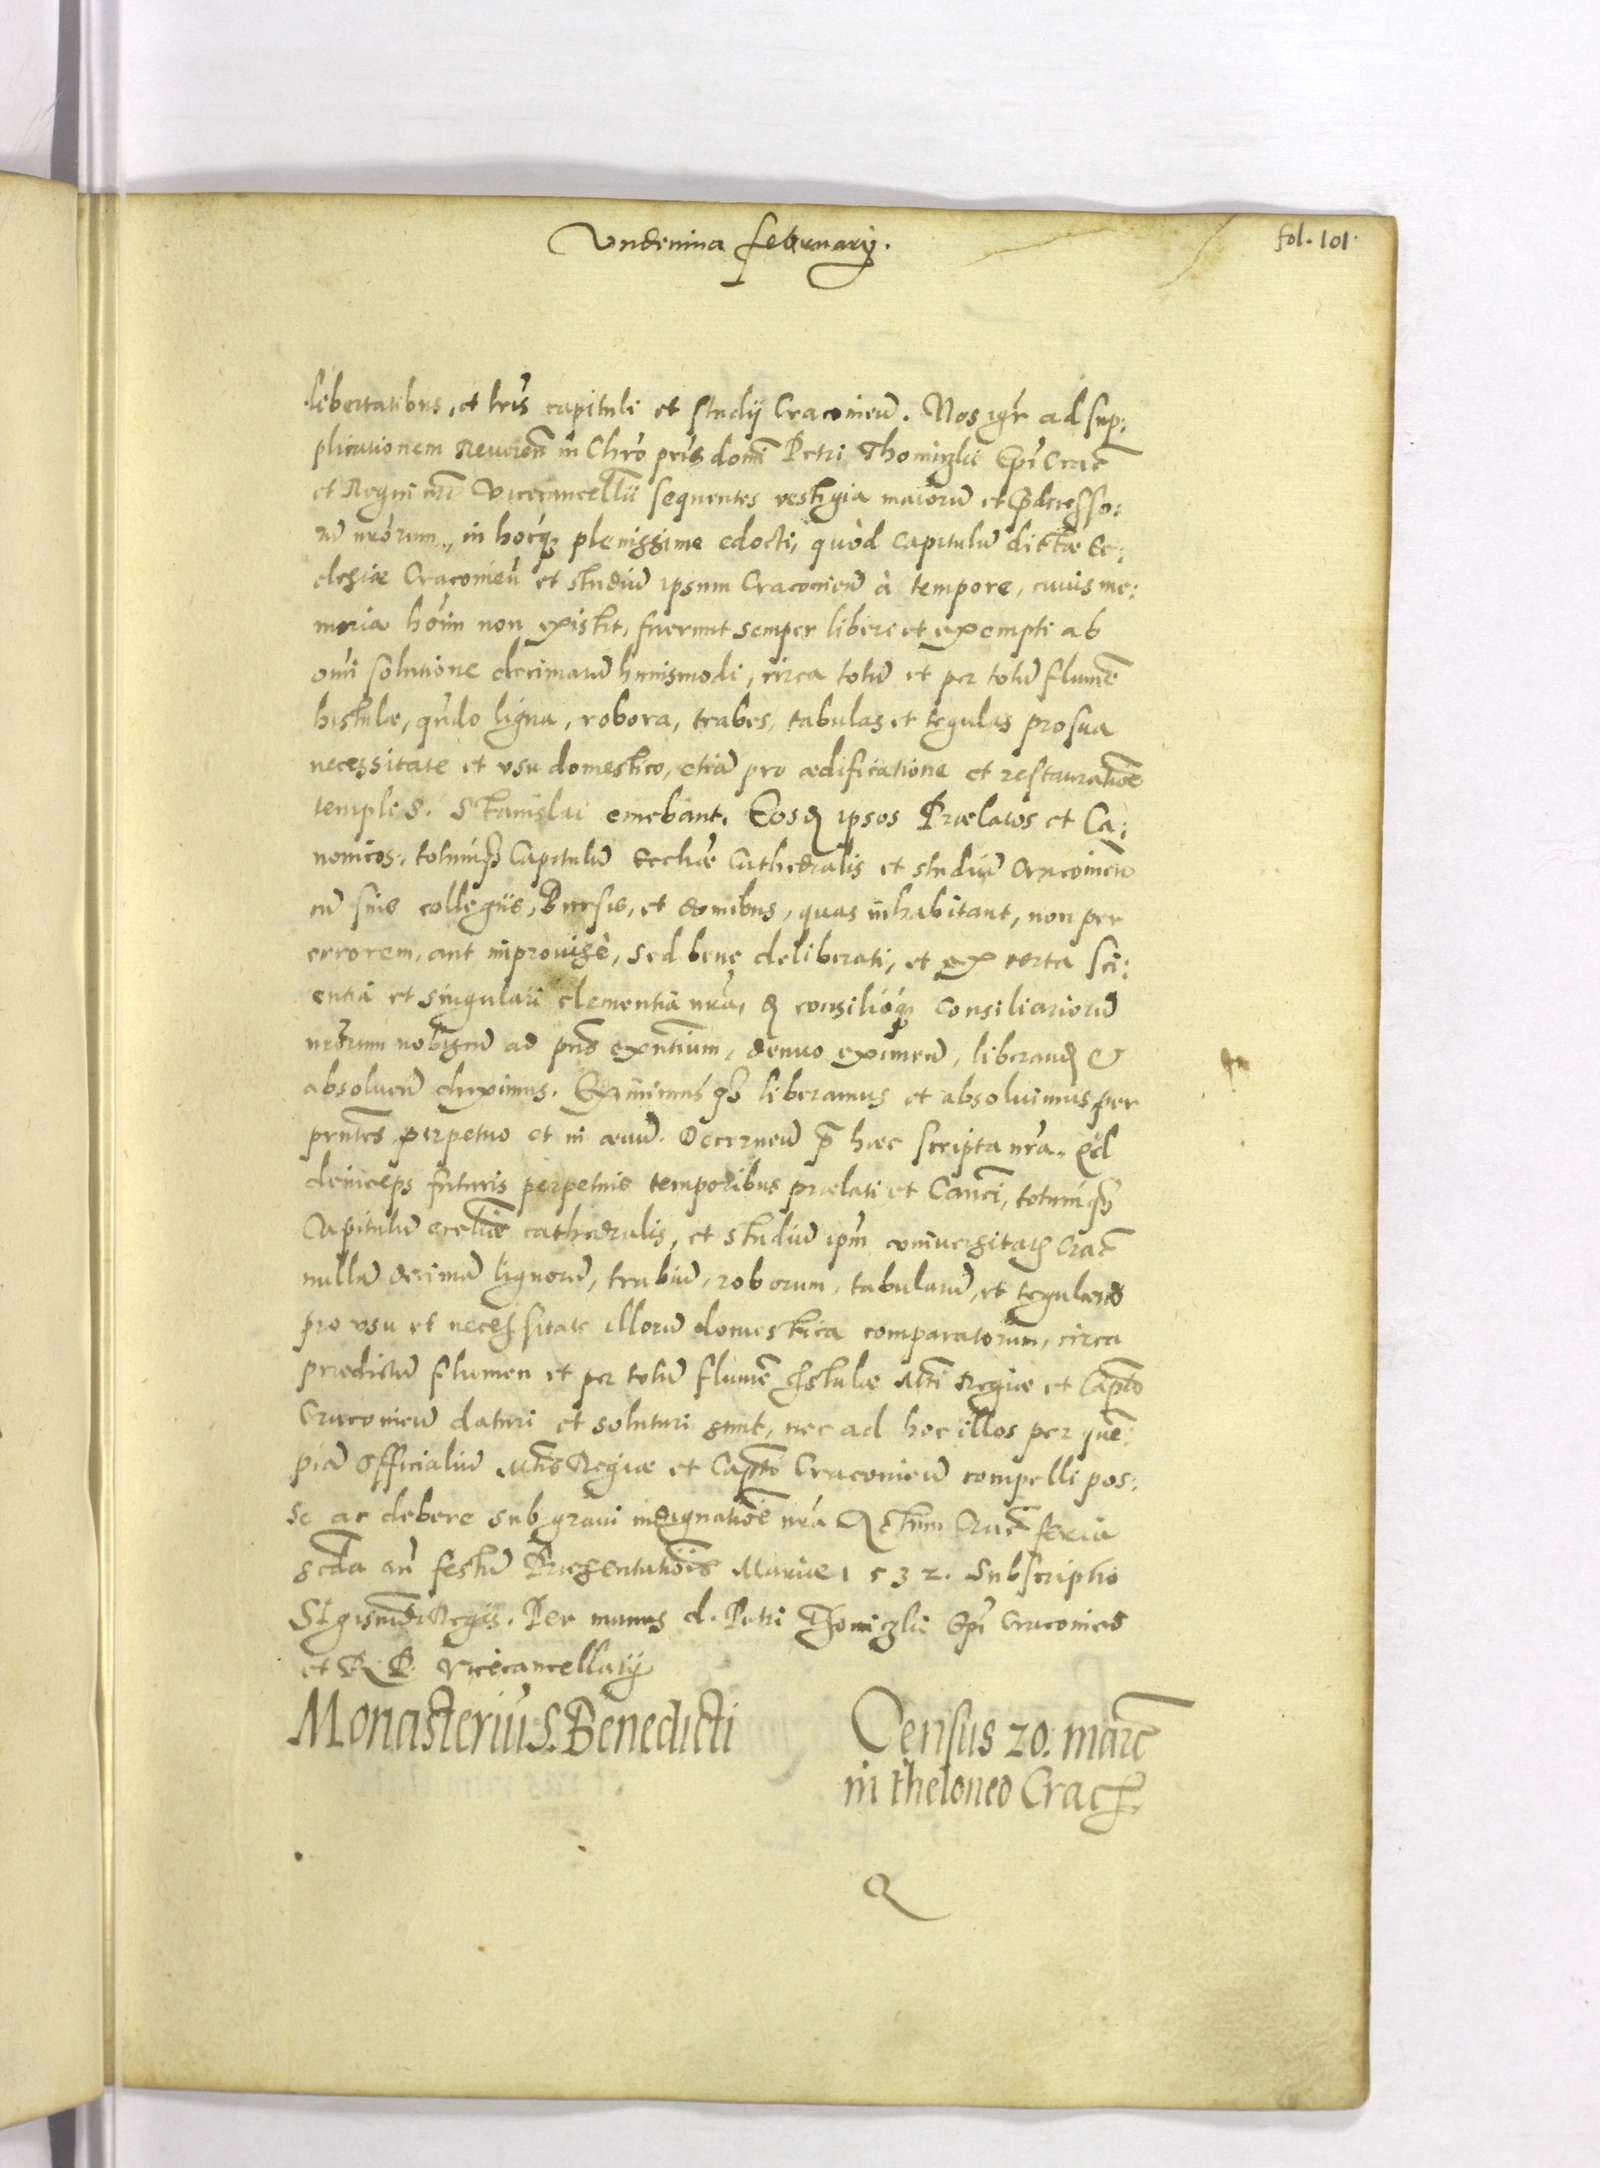 Undenina februarij.
fol. 101.
libertatibus, et lr̃is capituli et studij Cracovieñ. Nos igr̃ ad sup:
plicationem Reuereñ in Chr̃o pr̃is domĩ Petri Thomiczki Ep̃i Crac̃
et Regni nr̃i Vicecancellĩi sequentes vestigia maiorũ et p̃decesso:
rũ nr̃orum, in hocq̃ plenissime edocti, quòd Capitulũ dictæ Ec:
clesiæ Cracovieñ et studiũ ipsum Cracovieñ à tempore, cuius me:
moria hoĩm non existit, fuerunt semper liberi et exempti ab
om̃i solutione decimarũ huiusmodi, circa totũ et per totũ flumẽ
histulæ, qũdo ligna, robora, trabes, tabulas et tegulas pro sua
necessitate et vsu domestico, etiã pro ædificatione et restauratiõe
templi S. Stanislai emebant. Eosq̃ ipsos Prælatos et Ca:
nonicos, totumq̃ Capitulũ Eccliæ Cathedralis et studiũ Cracovieñ
cũ suis collegiis, Bursis, et domibus, quas inhabitant, non per
errorem, aut improuisè, sed bene deliberati, et ex certa sci:
entiã et singulari clementiã nr̃a, consilioq̃ Consiliariorũ
nr̃orum nobiscũ ad pr̃ns exñtium, denuo eximeñ, liberanđ et
absolueñ duximus. Eximimusq̃ liberamus et absoluimus per
prñtes perpetuo et in æuũ. Decerneñ p̃ hæc scripta nr̃a, q̃d
deinceps futuris perpetuis temporibus prælati et Canc̃i, totumq̃
Capitulũ eccliæ cathedralis, et studiũ ip̃m vniuersitatis Crac̃
nullã decimã lignorũ, trabiũ, roborum, tabularũ, et tegularũ
pro vsu et necessitate illorũ domestica comparatorum, circa
prædictũ flumen et per totũ flumẽ histulæ Mti Regiæ et Capto
Cracovieñ daturi et soluturi sunt, nec ad hoc illos per quẽ:
piã officialiũ Mtis Regiæ et Capto Cracovieñ compelli pos:
se ac debere sub graui indignatiõe nr̃a Datum Crac̃ feria
scđa añ festũ Præsentatiõis Mariæ 1532. Subscriptio
Sigismũdi Regis. Per manus d. Petri Thomiczki Ep̃i Cracovieñ
et R P. Vicecancellarij
Monasteriũ S. Benedicti
Census 20. marc̃
in theloneo Crac̃.